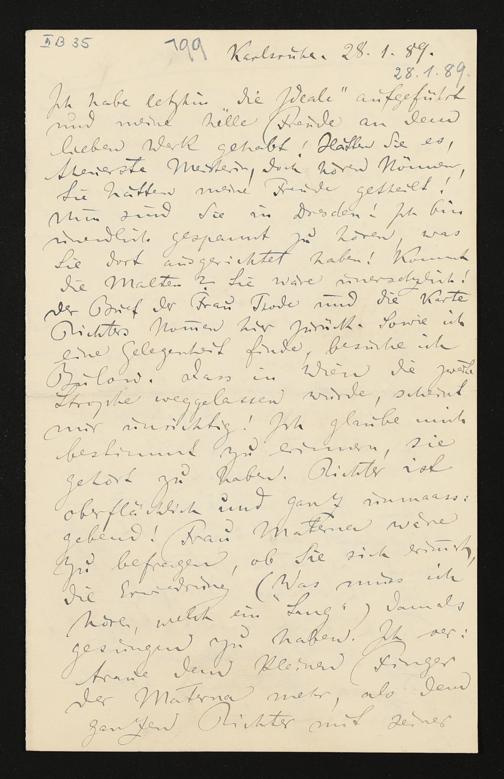 II B 35
199
Karlsruhe. 28. 1. 89.
28.1.89.
Ich habe letzthin „die Ideale“ aufgeführt
und meine helle Freude an dem
lieben Werk gehabt! Hätten Sie es,
theuerste Meisterin, doch hören können,
Sie hätten meine Freude getheilt!
Nun sind Sie in Dresden! Ich bin
unendlich gespannt zu hören, was
Sie dort ausgerichtet haben! Kommt
die Malten? Sie wäre unersetzlich!
Der Brief der Frau Thode und die Karte
Richters kommen hier zurück. Sowie ich
eine Gelegenheit finde, besuche ich
Bülow. Dass in Wien die zweite
Strophe weggelassen wurde, scheint
mir unrichtig! Ich glaube mich
bestimmt zu erinnern, sie
gehört zu haben. Richter ist
oberflächlich und ganz unmaass:
gebend! Frau Materna wäre
zu befragen, ob Sie sich erinnert,
die Erwiedrung (Was muss ich
hören, welch ein Sang“) damals
gesungen zu haben. Ich ver:
traue dem kleinen Finger
der Materna mehr, als dem
ganzen Richter mit seiner